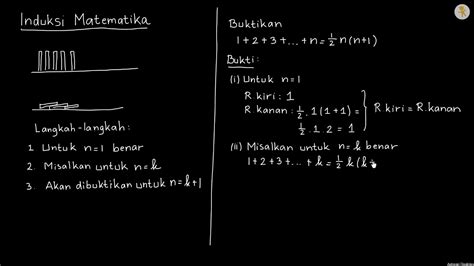 Induksi Matematika
Langkah-langkah:
1. Misalkan untuk n=1 benar
2. Misalkan untuk n=k
3. Akan dibuktikan untuk n=k+1
Buktikan
1+2+3+...+n=½n(n+1)
Bukti:
(i) Untuk n=1
R kiri: 1
R kanan: ½.1(1+1)=
½.1.2=1
R kiri = R.kanan
(ii) Misalkan untuk n=k benar
1+2+3+...+k=½k(k+